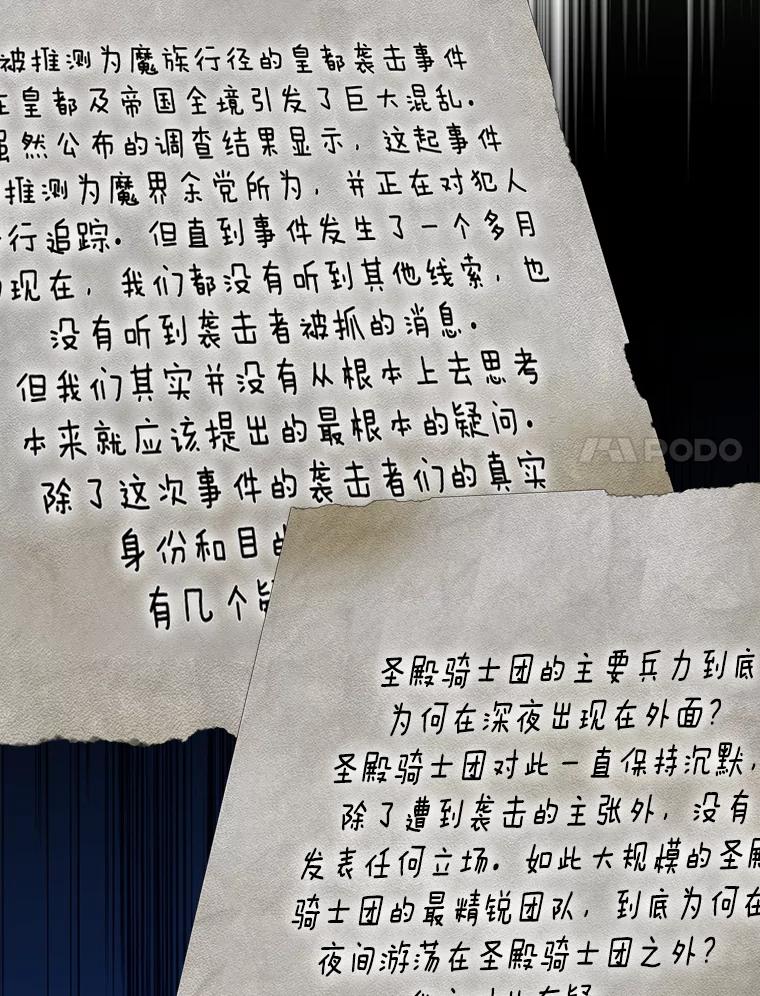 被推测为魔族行径的皇都袭击事件
在皇都及帝国全境引发了巨大混乱.
虽然公布的调查结果显示, 这起事件
推测为魔界余党所为, 并正在对犯人
行追踪. 但直到事件发生了一个多月
现在, 我们都没有听到其他线索, 也
没有听到袭击者被抓的消息.
但我们其实并没有从根本上去思考
本来就应该提出的最根本的疑问.
PODO
除了这次事件的袭击者们的真实
身份和目的
有几个疑
圣殿骑士团的主要兵力到底
为何在深夜出现在外面?
圣殿骑士团对此一直保持沉默,
除了遭到袭击的主张外, 没有
发表任何立场. 如此大规模的圣殿
骑士团的最精锐团队, 到底为何在
夜间游荡在圣殿骑士团之外?